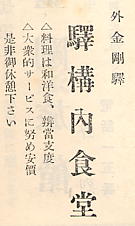 外金剛驛
驛構內食堂
△料理は和洋食、辨當支度
△大衆的サービスに努め安價
是非御休憩下さい